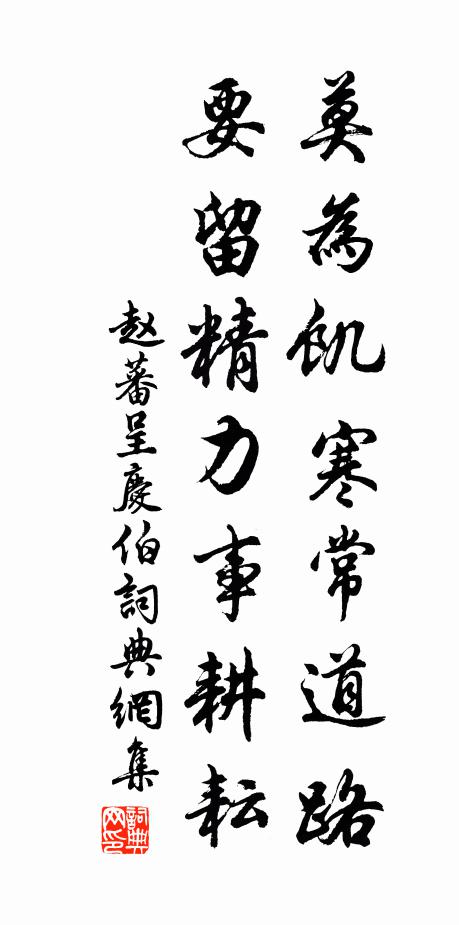 莫為飢寒常道路
要留精力事耕耘
赵蕃呈慶伯詞典網集
詞典網印